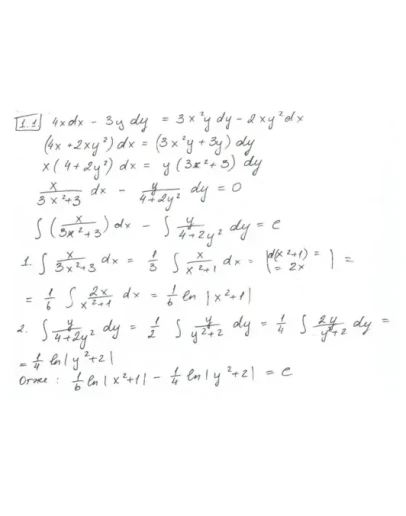 1.1 4xdx - 3y dy = 3x²y dy - 2xy²dx
(4x + 2xy²) dx = (3x²y + 3y) dy
x(4 + 2y²) dx = y(3x² + 3) dy
x/(3x²+3) dx - y/(4+2y²) dy = 0
∫(x/(3x²+3)) dx - ∫ y/(4+2y²) dy = C
1. ∫ x/(3x²+3) dx = 1/3 ∫ x/(x²+1) dx = |d(x²+1) = = 2x| =
= 1/6 ∫ 2x/(x²+1) dx = 1/6 ln |x²+1|
2. ∫ y/(4+2y²) dy = 1/2 ∫ y/(y²+2) dy = 1/4 ∫ 2y/(y²+2) dy =
= 1/4 ln|y²+2|
Отже : 1/6 ln|x²+1| - 1/4 ln|y²+2| = C